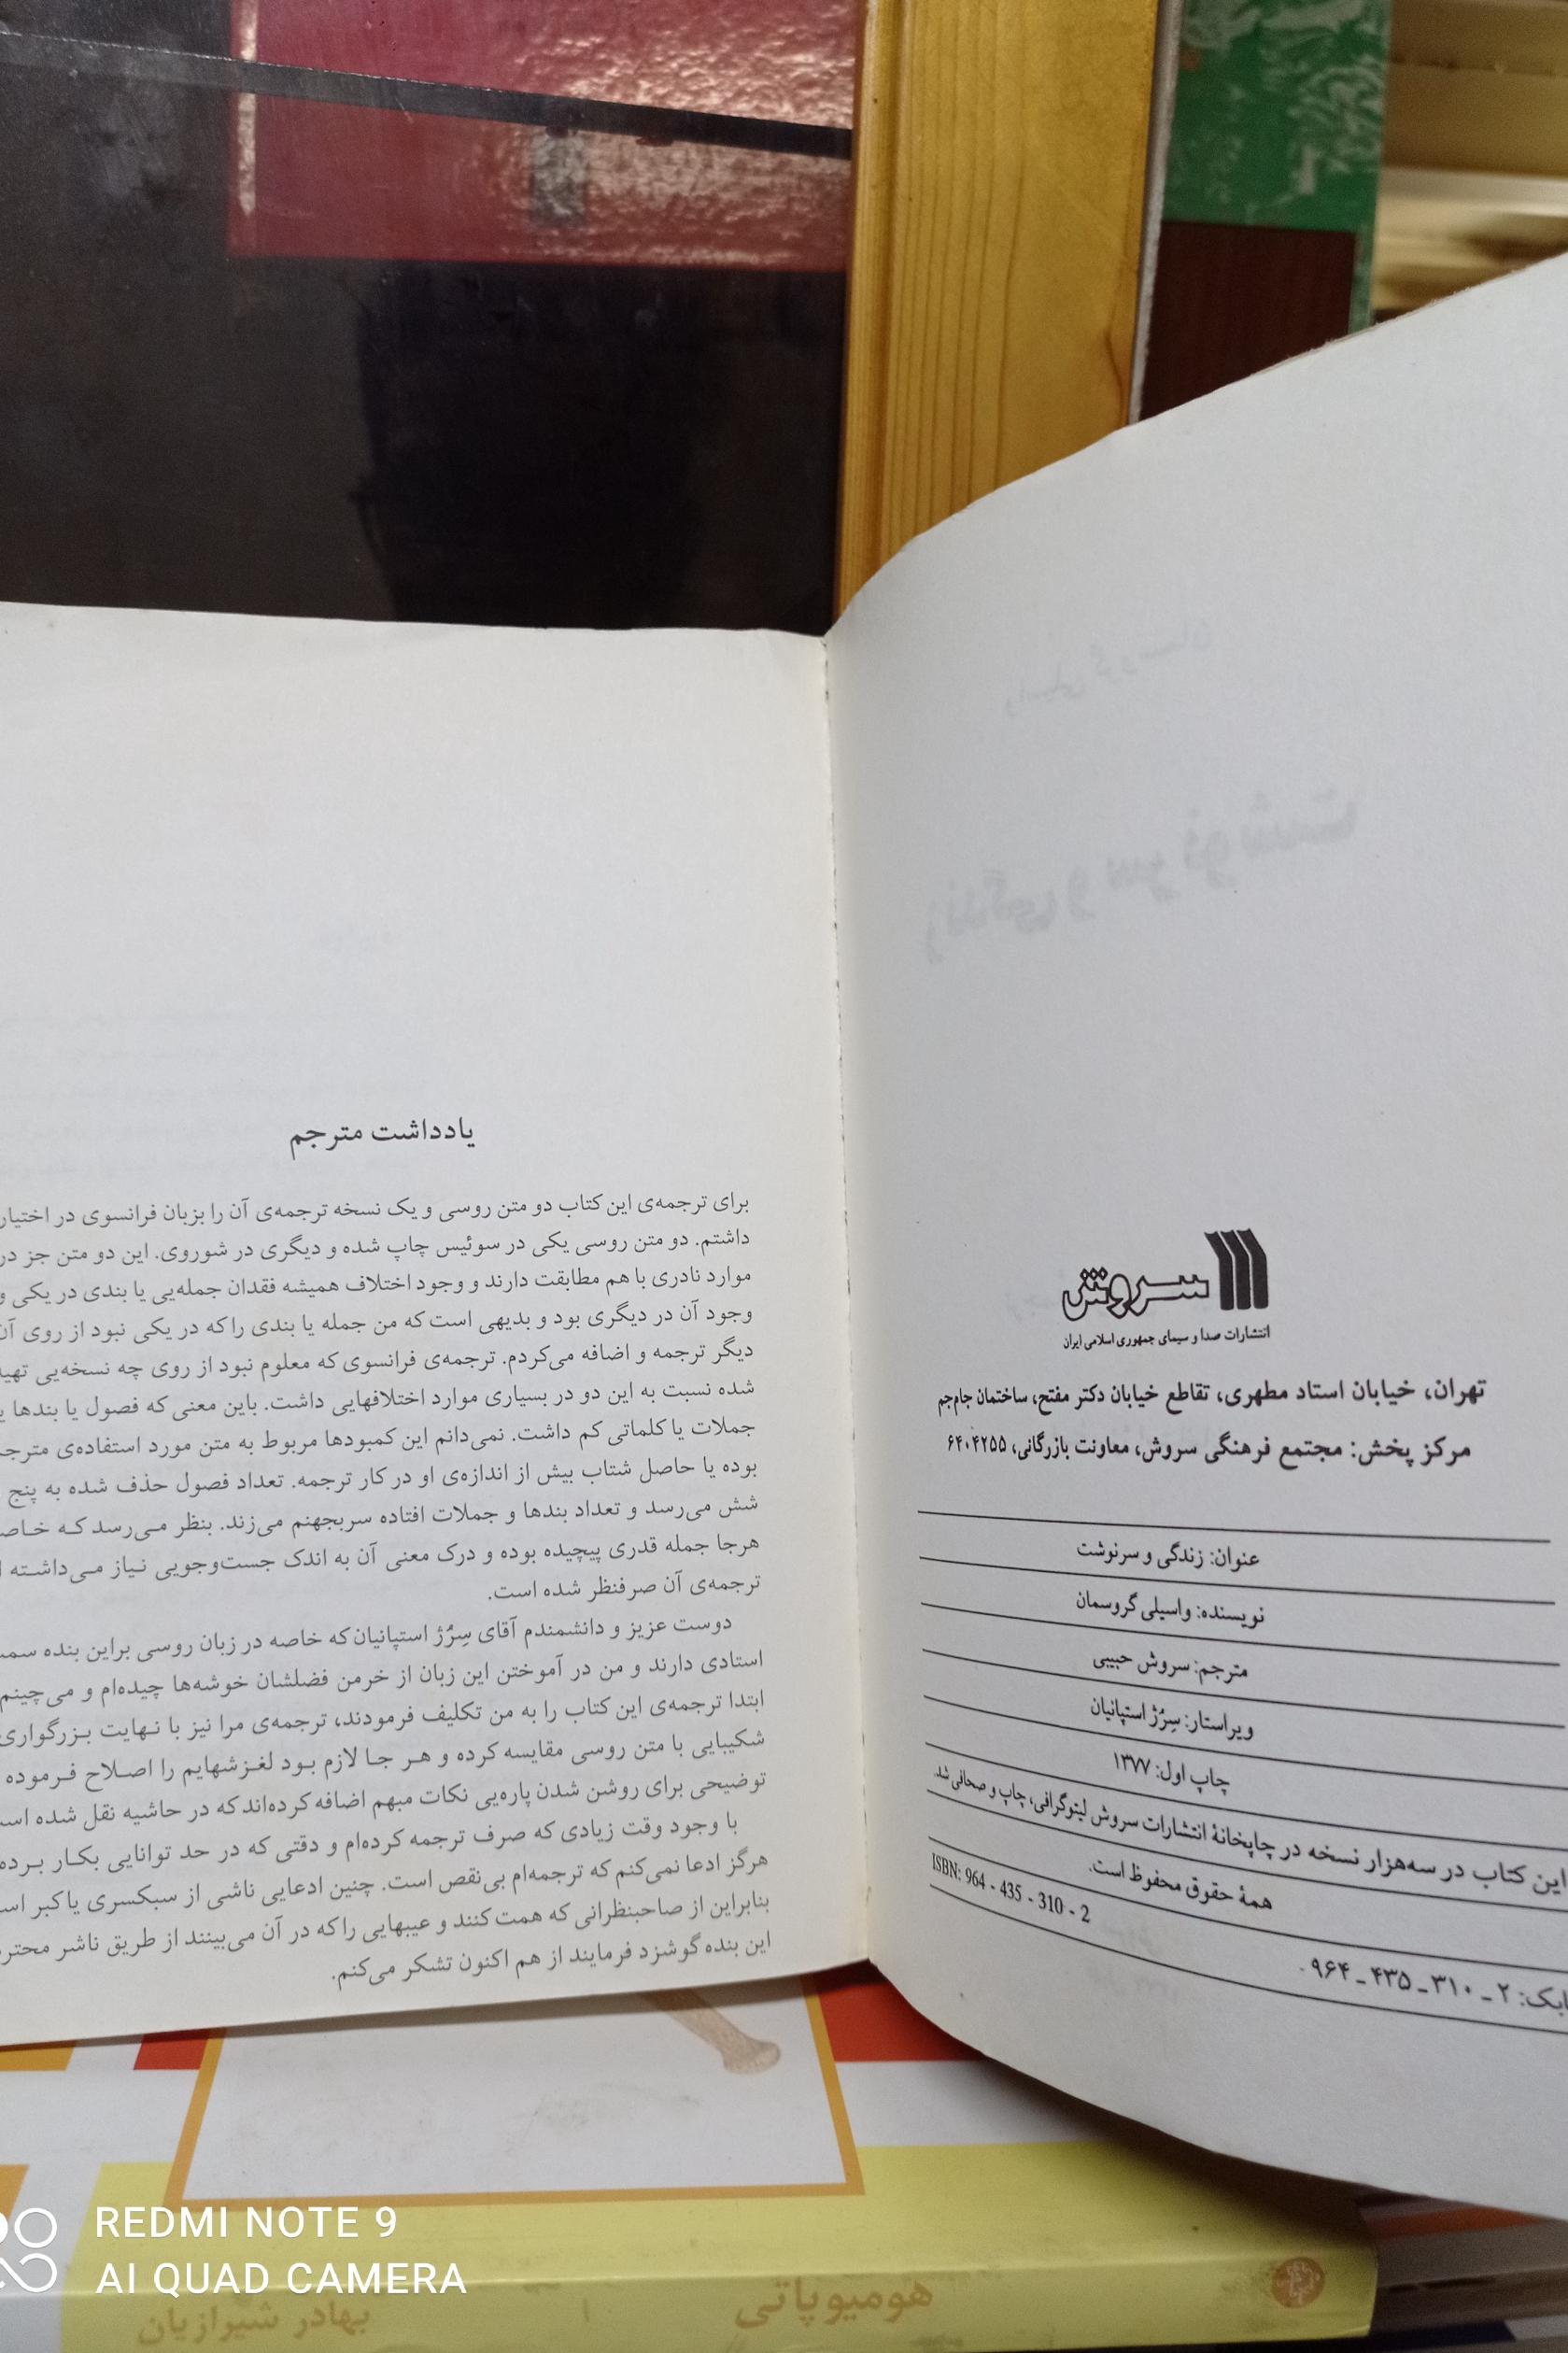 سروش
انتشارات صدا و سیمای جمهوری اسلامی ایران
تهران، خیابان استاد مطهری، تقاطع خیابان دکتر مفتح، ساختمان جام‌جم
مرکز پخش: مجتمع فرهنگی سروش، معاونت بازرگانی، ۶۴۰۴۲۵۵
عنوان: زندگی و سرنوشت
نویسنده: واسیلی گروسمان
مترجم: سروش حبیبی
ویراستار: سِرُژ استپانیان
چاپ اول: ۱۳۷۷
این کتاب در سه‌هزار نسخه در چاپخانهٔ انتشارات سروش لیتوگرافی، چاپ و صحافی شد.
همهٔ حقوق محفوظ است.
ISBN: 964 - 435 - 310 - 2
۹۶۴ ـ ۴۳۵ ـ ۳۱۰ ـ ۲
یادداشت مترجم
برای ترجمه‌ی این کتاب دو متن روسی و یک نسخه ترجمه‌ی آن را بزبان فرانسوی در اختیار
داشتم. دو متن روسی یکی در سوئیس چاپ شده و دیگری در شوروی. این دو متن جز در
موارد نادری با هم مطابقت دارند و وجود اختلاف همیشه فقدان جمله‌یی یا بندی در یکی و
وجود آن در دیگری بود و بدیهی است که من جمله یا بندی را که در یکی نبود از روی آن
دیگر ترجمه و اضافه می‌کردم. ترجمه‌ی فرانسوی که معلوم نبود از روی چه نسخه‌یی
شده نسبت به این دو در بسیاری موارد اختلافهایی داشت. باین معنی که فصول یا بندها
جملات یا کلماتی کم داشت. نمی‌دانم این کمبودها مربوط به متن مورد استفاده‌ی
بوده یا حاصل شتاب بیش از اندازه‌ی او در کار ترجمه. تعداد فصول حذف شده به پنج
شش می‌رسد و تعداد بندها و جملات افتاده سربجهنم می‌زند. بنظر می‌رسد که
هرجا جمله قدری پیچیده بوده و درک معنی آن به اندک جست‌وجویی نیاز می‌داشته
ترجمه‌ی آن صرفنظر شده است.
دوست عزیز و دانشمندم آقای سِرُژ استپانیان که خاصه در زبان روسی براین بنده
استادی دارند و من در آموختن این زبان از خرمن فضلشان خوشه‌ها چیده‌ام و می‌چینم
ابتدا ترجمه‌ی این کتاب را به من تکلیف فرمودند، ترجمه‌ی مرا نیز با نهایت بزرگواری
شکیبایی با متن روسی مقایسه کرده و هر جا لازم بود لغزشهایم را اصلاح فرموده
توضیحی برای روشن شدن پاره‌یی نکات مبهم اضافه کرده‌اند که در حاشیه نقل شده
با وجود وقت زیادی که صرف ترجمه کرده‌ام و دقتی که در حد توانایی بکار
هرگز ادعا نمی‌کنم که ترجمه‌ام بی‌نقص است. چنین ادعایی ناشی از سبکسری یا کبر
بنابراین از صاحبنظرانی که همت کنند و عیبهایی را که در آن می‌بینند از طریق ناشر
این بنده گوشزد فرمایند از هم اکنون تشکر می‌کنم.
REDMI NOTE 9
AI QUAD CAMERA
هومیوپاتی
بهادر شیرازیان